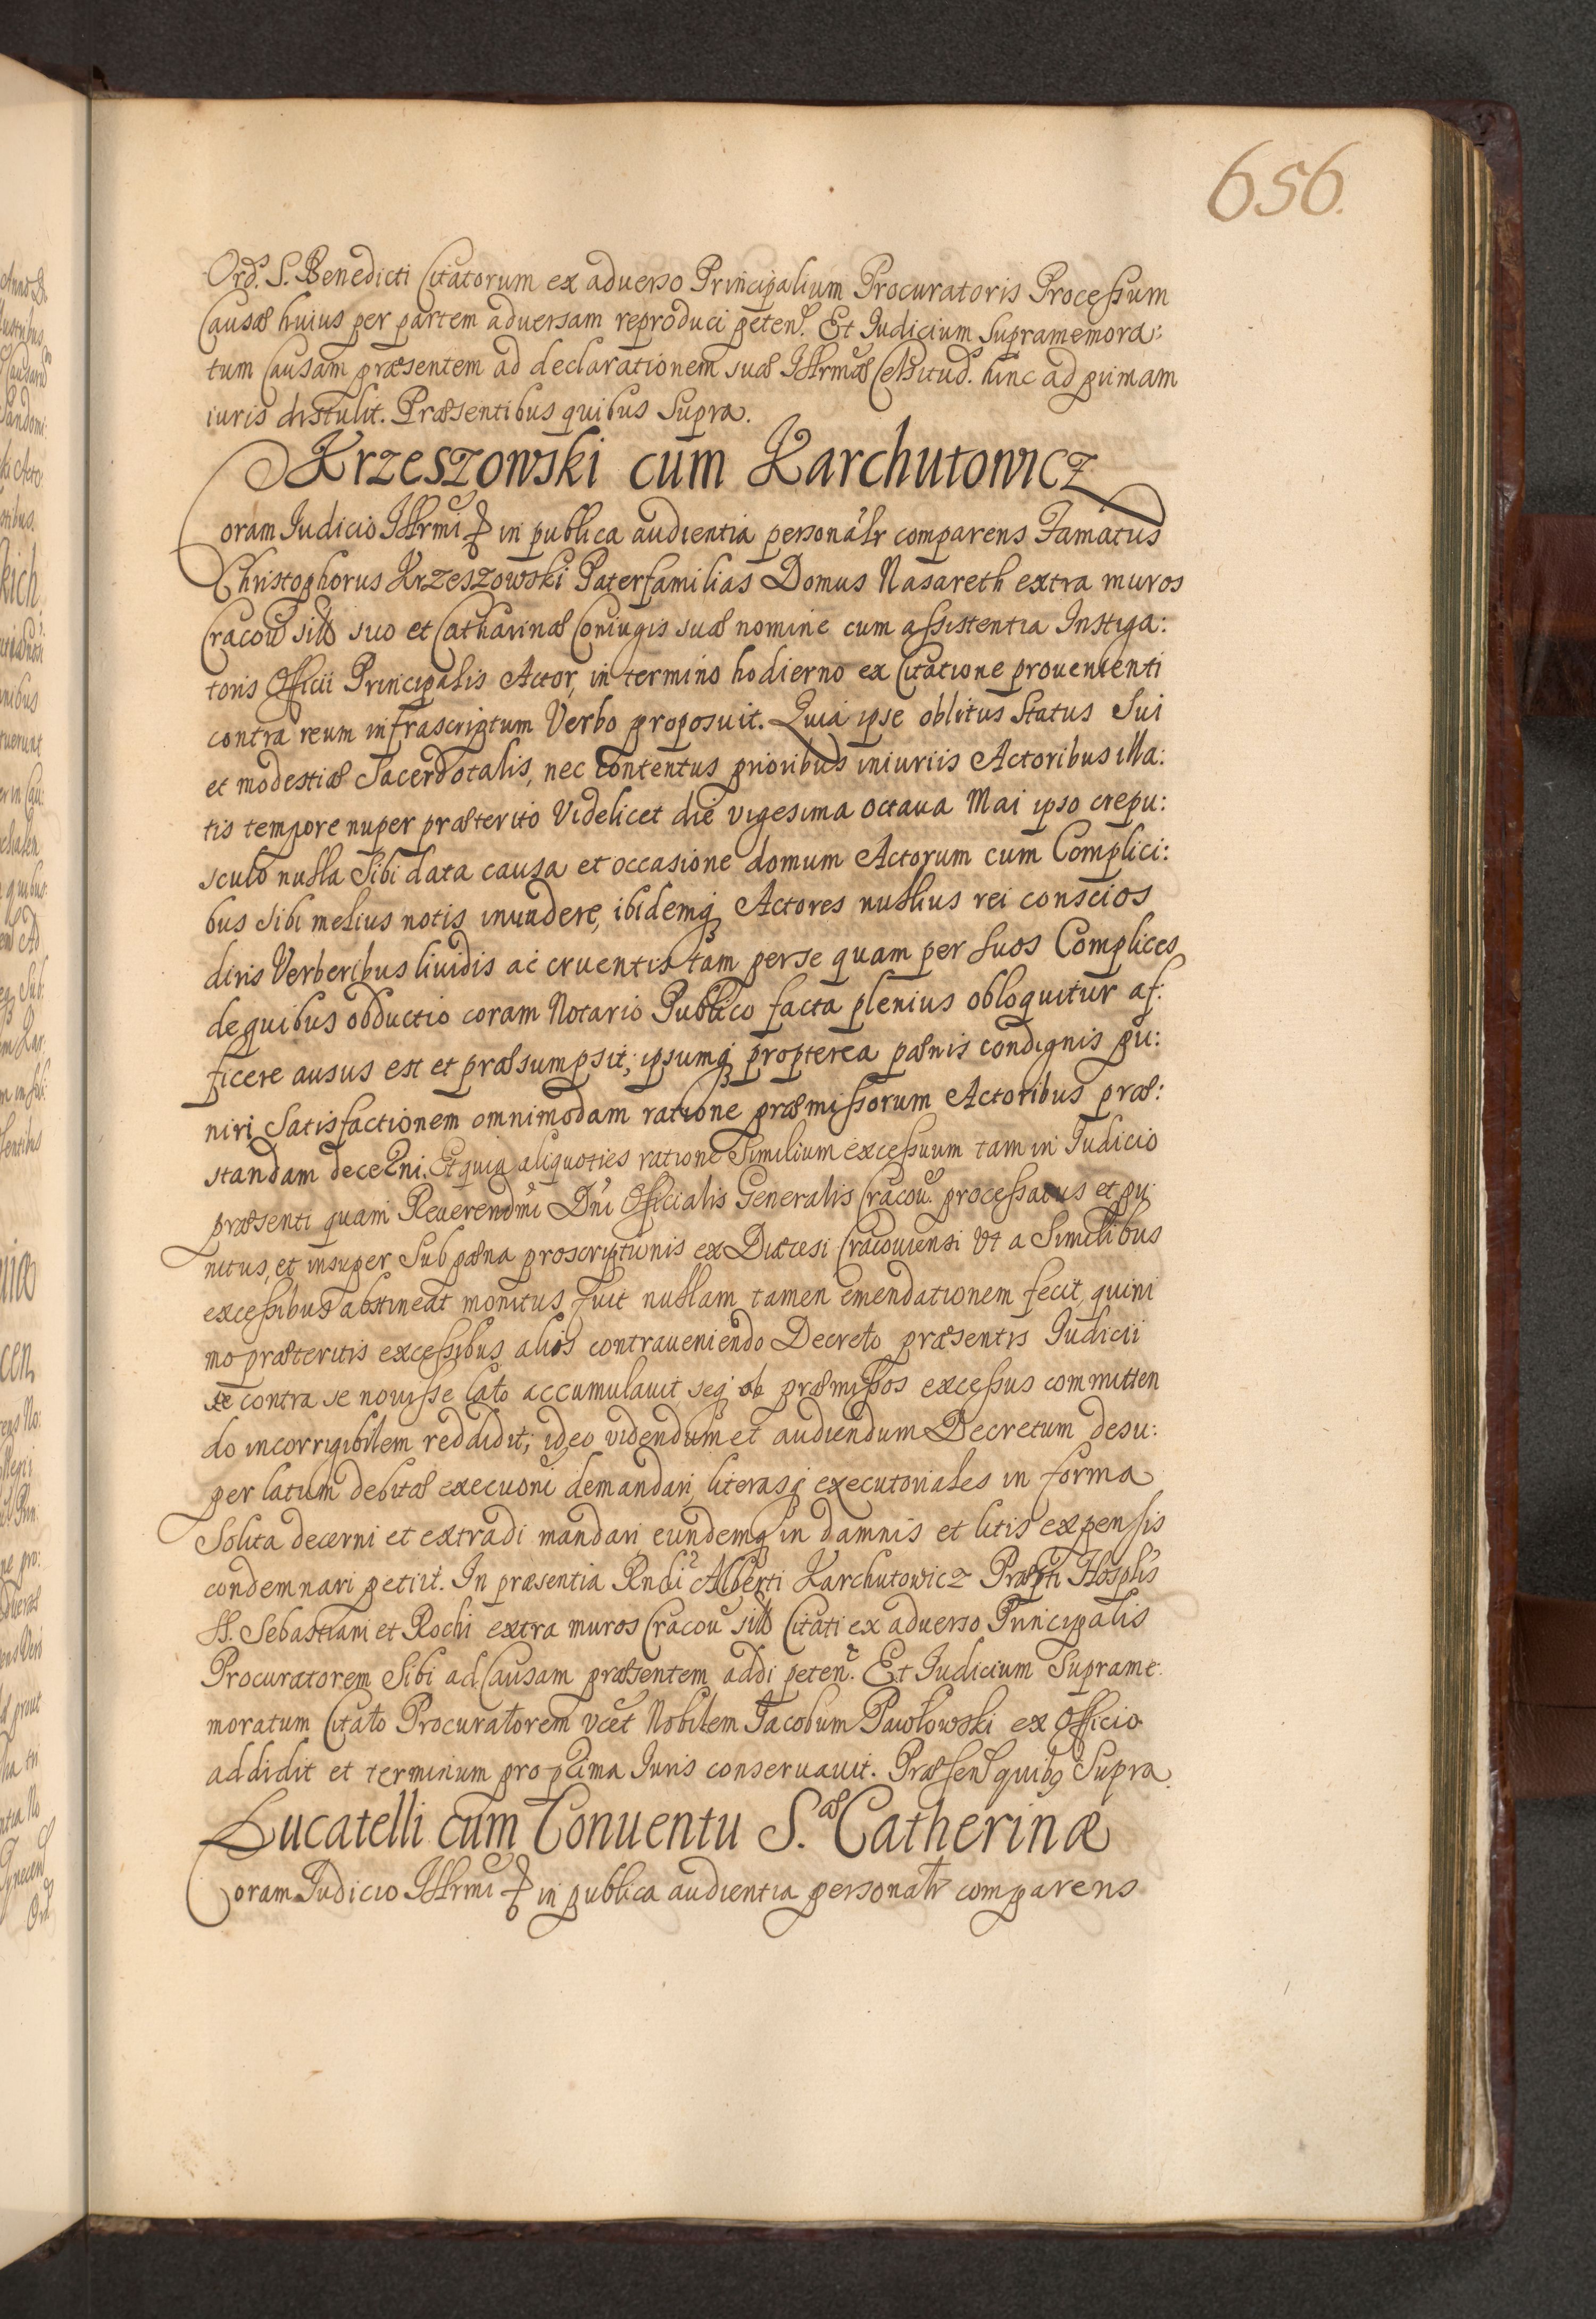 656.
Ord. S. Benedicti Citatorum ex aduerso Principalium Procuratoris Processum
Causæ huius per partem aduersam reproduci peten. Et Iudicium supramemora:
tum Causam præsentem ad declarationem suæ Illrmæ Celsitud. hinc ad primam
iuris distulit. Præsentibus quibus supra.
Krzeszowski cum Karchutowicz
Coram Iudicio Illrmi & in publica audientia personalr comparens Famatus
Christophorus Krzeszowski Paterfamilias Domus Nasareth extra muros
Cracou sitæ suo et Catharinæ Coniugis suæ nomine cum assistentia Instiga:
toris Officii Principalis Actor, in termino hodierno ex Citatione prouenienti
contra reum infrascriptum Verbo proposuit. Quia ipse oblitus Status Sui
et modestiæ Sacerdotalis, nec contentus prioribus iniuriis Actoribus illa:
tis tempore nuper præterito Videlicet die vigesima octaua Mai ipso crepu:
sculo nulla Sibi data causa et occasione domum Actorum cum Complici:
bus sibi melius notis inuadere, ibidemq Actores nullius rei conscios
diris Verberibus liuidis ac cruentis tam perse quam per suos Complices
de quibus obductio coram Notario Publico facta plenius obloquitur af:
ficere ausus est et præsumpsit; ipsumq propterea pœnis condignis pu:
niri Satisfactionem omnimodam ratione præmissorum Actoribus præ:
standam decerni. Et quia aliquoties ratione Similium excessuum tam in Iudicio
præsenti quam Reuerendmi Dni Officialis Generalis Cracou. processatus et pu:
nitus, et insuper Sub pœna proscriptionis ex Diœcesi Cracouiensi Vt a Similibus
excessibus abstineat monitus fuit nullam tamen emendationem fecit, quini
mo præteritis excessibus alios contraueniendo Decreto præsentis Iudicii
se contra se nouisse lato accumulauit seq ob præmissos excessus committen
do incorrigibilem reddidit; ideo videndum et audiendum Decretum desu:
per latum debitæ execuoni demandari, literasq executoriales in forma
Solita decerni et extradi mandari, eundemq in damnis et litis expensis
condemnari petiit. In præsentia Rndi Alberti Karchutowicz Præpti Hosplis
SS. Sebastiani et Rochi extra muros Cracou sitæ Citati ex aduerso Principalis
Procuratorem Sibi ad Causam præsentem addi peten. Et Iudicium Suprame:
moratum Citato Procuratorem vcet Nobilem Iacobum Pawłowski ex Officio
addidit et terminum pro prima Iuris conseruauit. Præsen quibq Supra.
Lucatelli cum Conuentu S.æ Catherinæ
Coram Iudicio Illrmi & in publica audientia personalr comparens